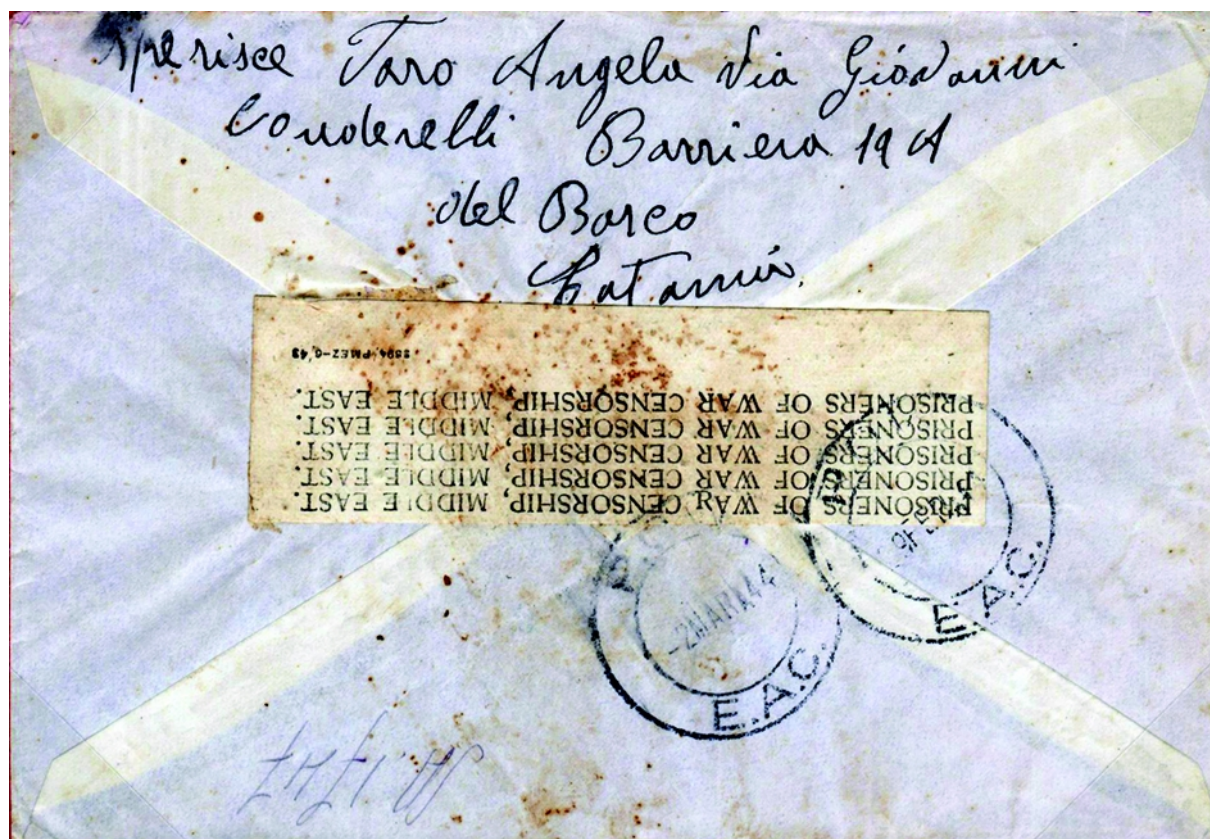 Taro Angela Via Giovanni
Conderelli Barriera 19 A
del Bosco
Catania
PRISONERS OF WAR CENSORSHIP, MIDDLE EAST.
PRISONERS OF WAR CENSORSHIP, MIDDLE EAST.
PRISONERS OF WAR CENSORSHIP, MIDDLE EAST.
PRISONERS OF WAR CENSORSHIP, MIDDLE EAST.
PRISONERS OF WAR CENSORSHIP, MIDDLE EAST.
E.A.C.
-2MAR44
E.A.C.